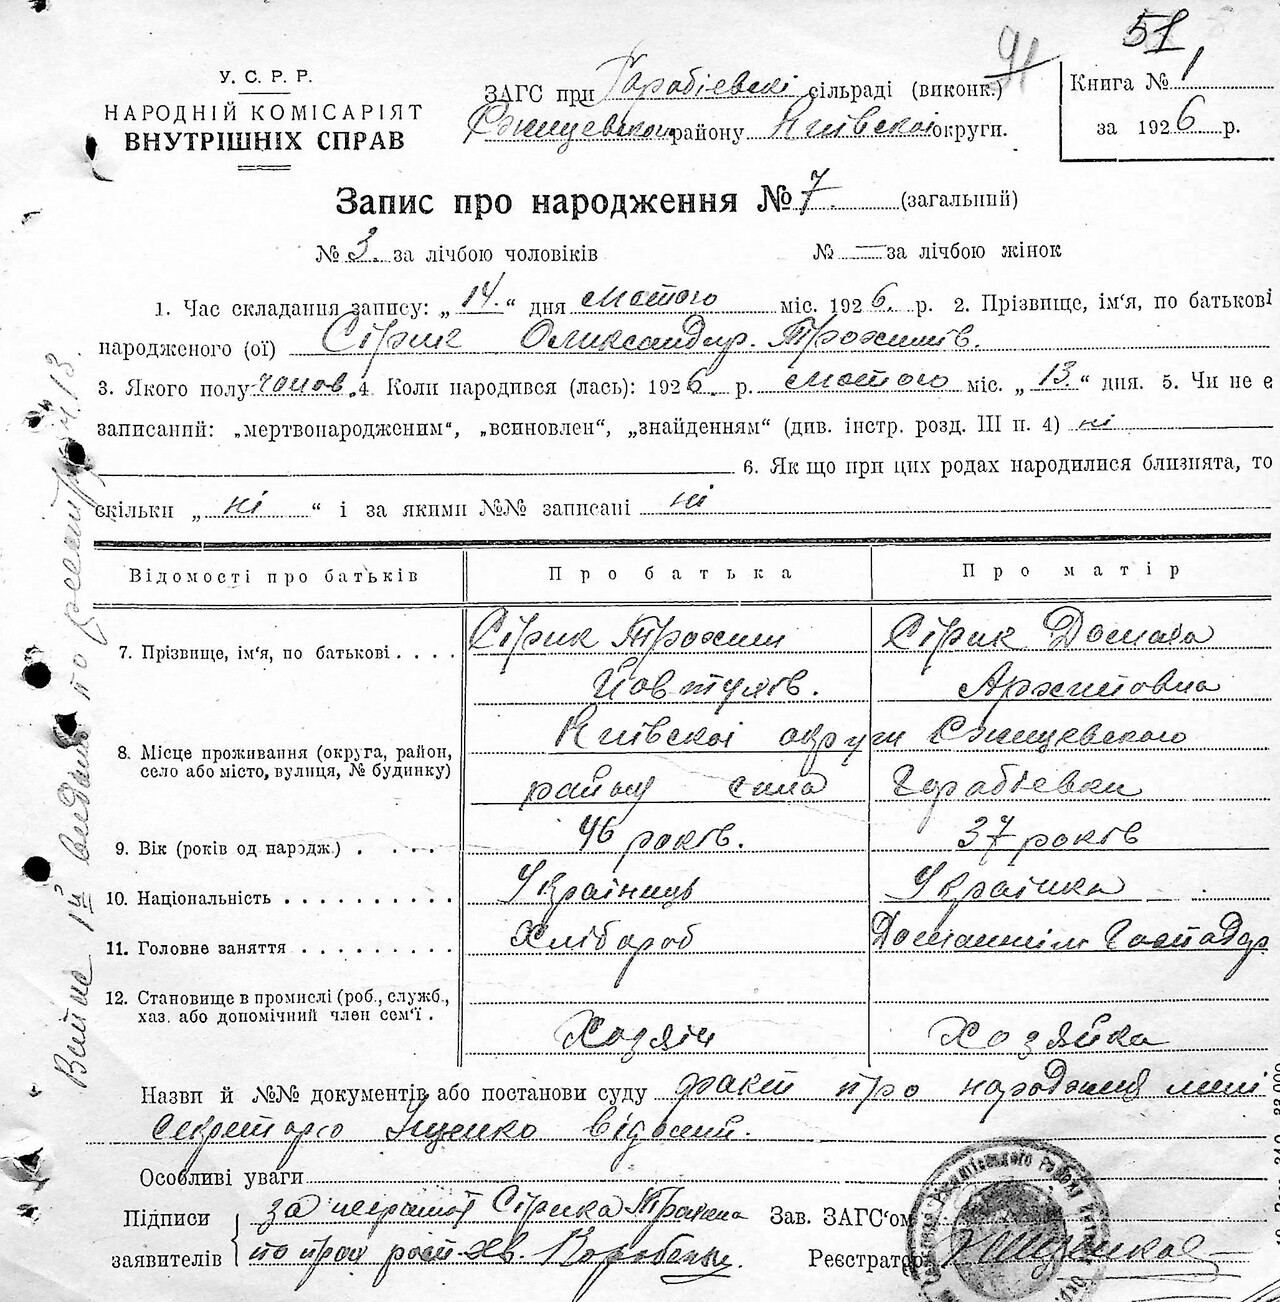 51
91
У. С. Р. Р.
НАРОДНІЙ КОМІСАРІЯТ
ВНУТРІШНІХ СПРАВ
ЗАГС при Горобієвскі сільраді (виконк.)
Ржищевского району Київскої округи.
Книга № 1
за 1926 р.
Запис про народження № 7 (загальний)
№ 3 за лічбою чоловіків
№ — за лічбою жінок
1. Час складання запису: „14“ дня лютого міс. 1926 р. 2. Прізвище, ім'я, по батькові
народженого (ої) Сірик Олександр Трохимів.
3. Якого полу чолов. 4. Коли народився (лась): 1926 р. лютого міс. „13“ дня. 5. Чи не є
записаний: „мертвонародженим“, „всиновлен“, „знайденням“ (див. інстр. розд. III п. 4) ні
6. Як що при цих родах народилися близнята, то
скільки „ні“ і за якими №№ записані ні
Відомості про батьків
Про батька
Про матір
7. Прізвище, ім'я, по батькові . . . .
Сірик Трохим
Йовтухів.
Сірик Домаха
Архиповна
8. Місце проживання (округа, район,
село або місто, вулиця, № будинку)
Київскої округи Ржищевского
району села Горобієвки
9. Вік (років од народж.) . . . . .
46 років.
37 років
10. Національність . . . . . . . . . .
Українець
Українка
11. Головне заняття . . . . . . . . .
Хлібороб
Домашнім господар
12. Становище в промислі (роб., служб.,
хаз. або допомічний член сем'ї .
Хозяін
Хозяйка
Назви й №№ документів або постанови суду факт про народження мині
секретарю Яценко відомий.
Особливі уваги
Підписи
заявителів
за неграмот Сірика Трохима
по прос росп-хв. Коробенко
Зав. ЗАГС'ом
Реєстратор
Витяг 1й видано по реєстру № 13.